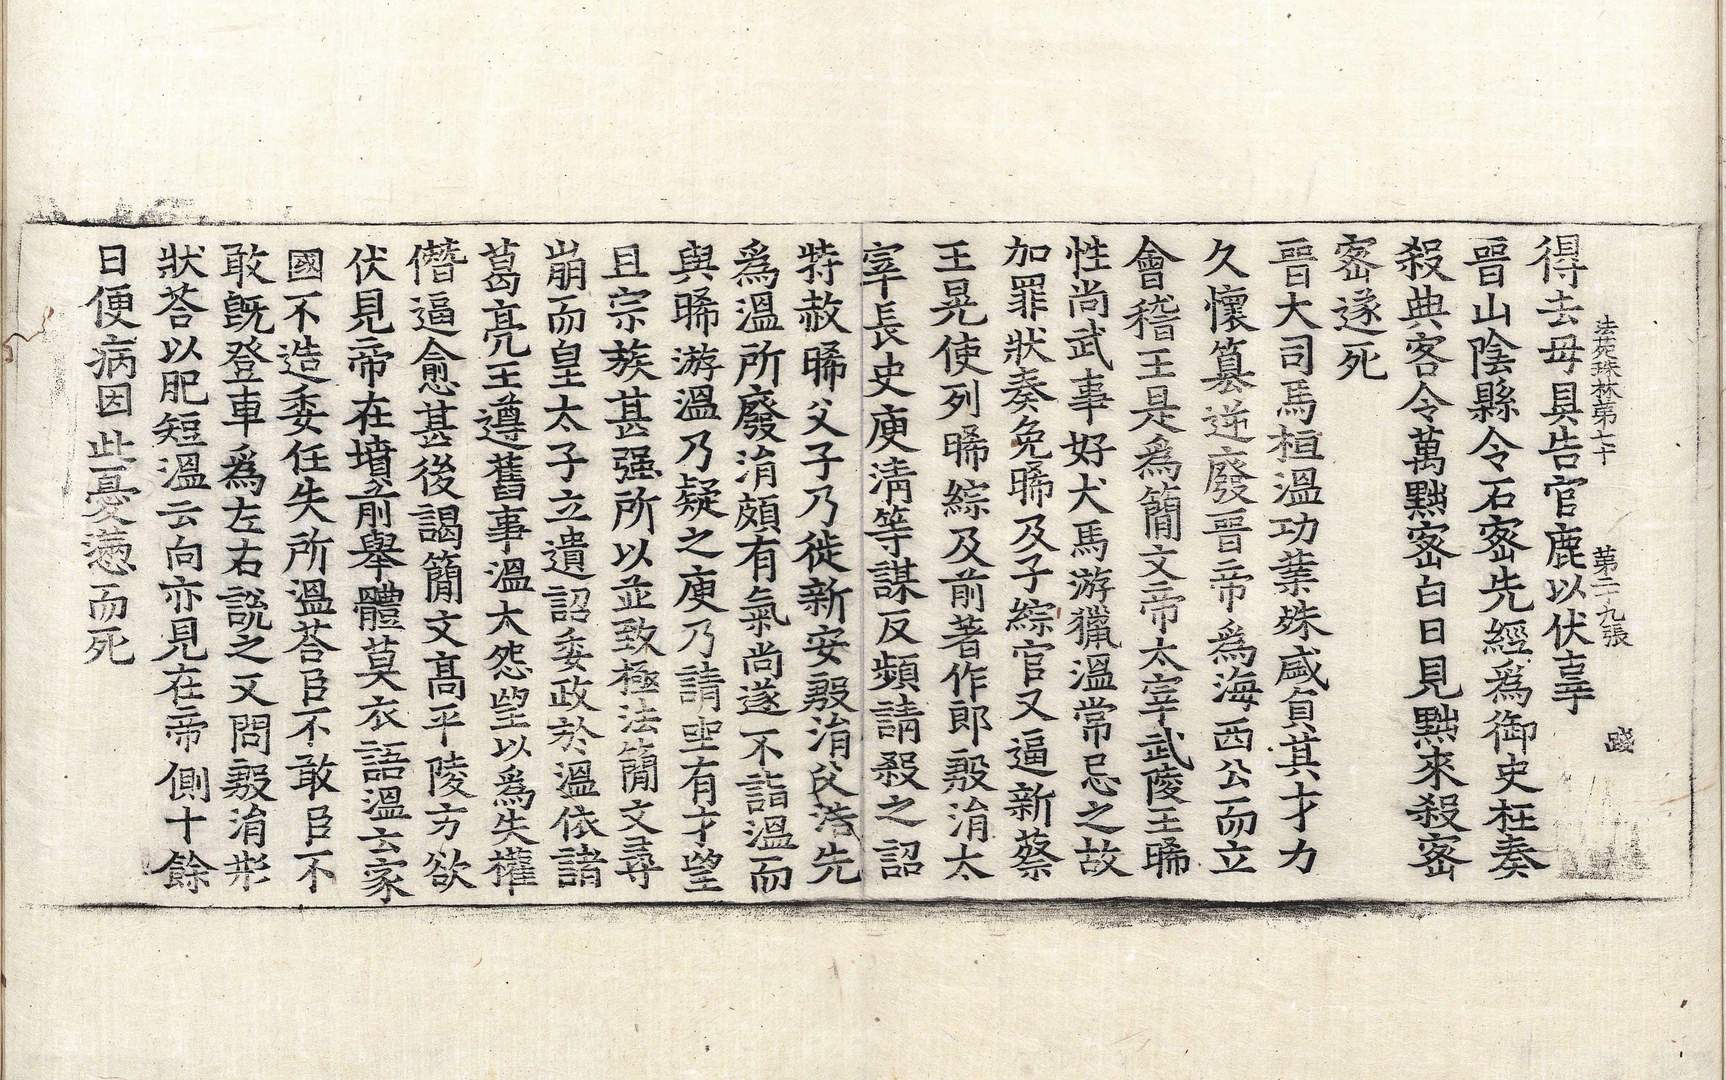 法苑珠林第七十 第二十九張 踐
得去毋具告官鹿以伏辜
晉山陰縣令石密先經爲御史枉奏
殺典客令萬黜密白日見黜來殺密
密遂死
晉大司馬桓溫功業殊盛負其才力
久懷篡逆廢晉帝爲海西公而立
會稽王是爲簡文帝太宰武陵王晞
性尚武事好犬馬游獵溫常忌之故
加罪狀奏免晞及子綜官又逼新蔡
王晃使列晞綜及前著作郎殷涓太
宰長史庾淸等謀反頻請殺之詔
特赦晞父子乃徙新安殷涓父浩先
爲溫所廢涓頗有氣尚遂不詣溫而
與晞游溫乃疑之庾乃請聖有才望
且宗族甚强所以並致極法簡文尋
崩而皇太子立遺詔委政於溫依諸
葛亮王遵舊事溫大怨望以爲失權
僭逼愈甚後謁簡文高平陵方欲
伏見帝在墳前舉體莫衣語溫云家
國不造委任失所溫荅臣不敢臣不
敢旣登車爲左右說之又問殷涓形
狀荅以肥短溫云向亦見在帝側十餘
日便病因此憂懣而死